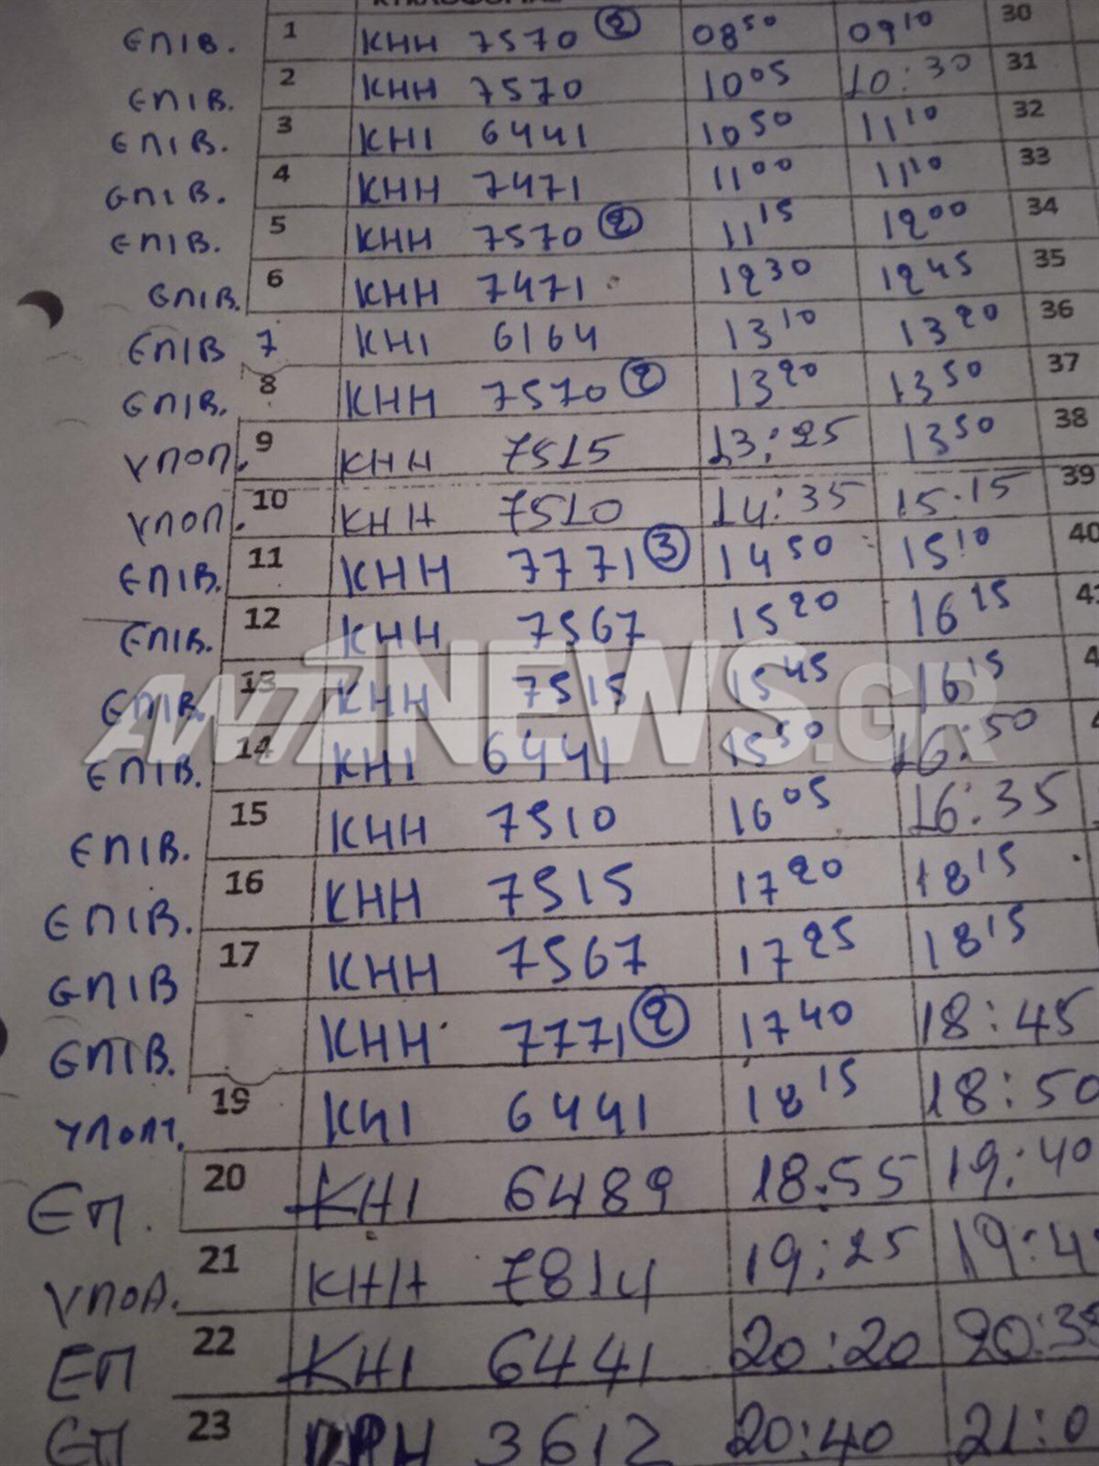 ΕΠΙΒ. 1 ΚΗΗ 7570 ② 08⁵⁰ 09¹⁰ 30
ΕΠΙΒ. 2 ΚΗΗ 7570 10⁰⁵ 10:30 31
ΕΠΙΒ. 3 ΚΗΙ 6441 10⁵⁰ 11¹⁰ 32
ΕΠΙΒ. 4 ΚΗΗ 7471 11⁰⁰ 11¹⁰ 33
ΕΠΙΒ. 5 ΚΗΗ 7570 ② 11¹⁵ 12⁰⁰ 34
ΕΠΙΒ. 6 ΚΗΗ 7471 12³⁰ 12⁴⁵ 35
ΕΠΙΒ 7 ΚΗΙ 6164 13¹⁰ 13²⁰ 36
ΕΠΙΒ. 8 ΚΗΗ 7570 ② 13²⁰ 13⁵⁰ 37
ΥΠΟΠ. 9 ΚΗΗ 7515 13:25 13⁵⁰ 38
ΥΠΟΠ. 10 ΚΗΗ 7510 14:35 15.15 39
ΕΠΙΒ. 11 ΚΗΗ 7771 ③ 14⁵⁰ 15¹⁰ 40
ΕΠΙΒ. 12 ΚΗΗ 7567 15²⁰ 16¹⁵
ΕΠΙΒ. 13 ΚΗΗ 7515 15⁴⁵ 16¹⁵
ANT1NEWS.GR
ΕΠΙΒ. 14 ΚΗΙ 6441 15⁵⁰ 16:50
ΕΠΙΒ. 15 ΚΗΗ 7510 16⁰⁵ 16:35
ΕΠΙΒ. 16 ΚΗΗ 7515 17²⁰ 18¹⁵
ΕΠΙΒ 17 ΚΗΗ 7567 17²⁵ 18¹⁵
ΕΠΙΒ. ΚΗΗ 7771 ② 17⁴⁰ 18:45
ΥΠΟΠ. 19 ΚΗΙ 6441 18¹⁵ 18:50
ΕΠ. 20 ΚΗΙ 6489 18.55 19:40
ΥΠΟΛ. 21 ΚΗΗ 7814 19:25 19:4
ΕΠ 22 ΚΗΙ 6441 20:20 20:35
ΕΠ 23 3612 20:40 21:0